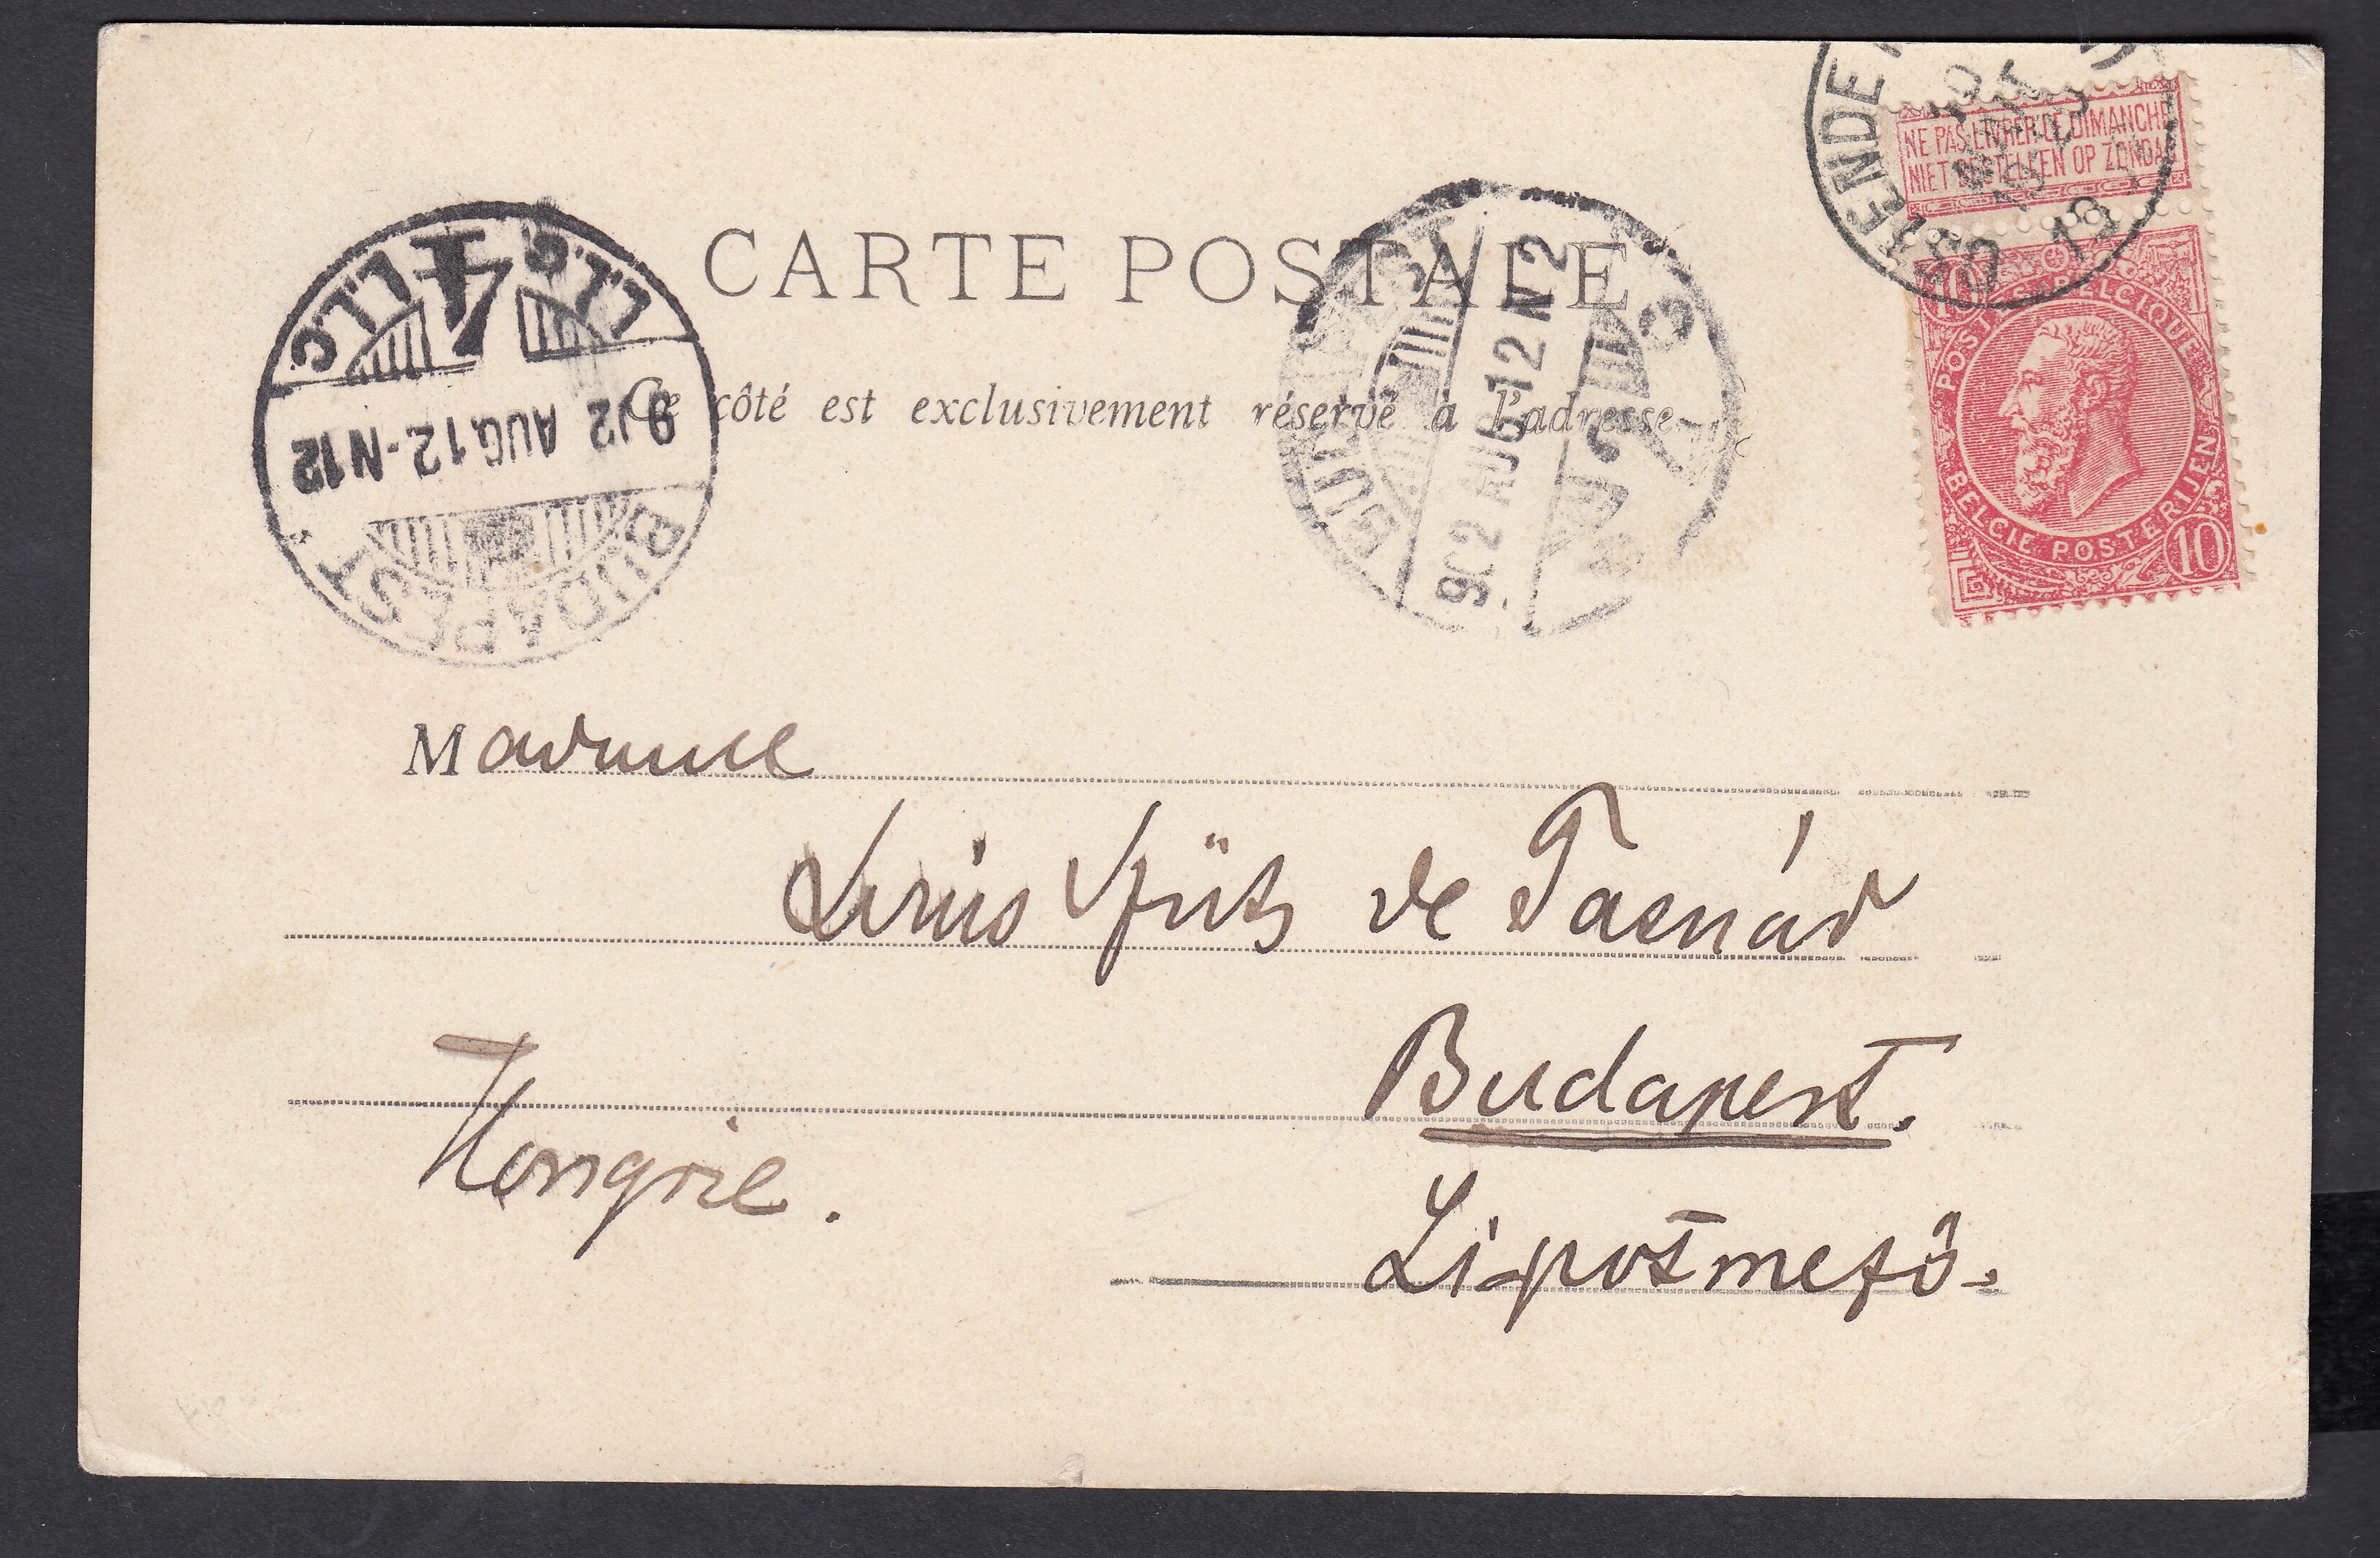 CARTE POSTALE
Ce côté est exclusivement réservé à l'adresse
OSTENDE
10
AOUT
13
NE PAS LIVRER LE DIMANCHE
NIET BESTELLEN OP ZONDAG
10
POSTES BELGIQUE
BELGIE POSTERIJEN
10
BUDAPEST
902 AUG 12 N 2
4
BUDAPEST
902 AUG.12-N12
Madame
de Tasnád
Budapest.
Hongrie.
Lipótmező.